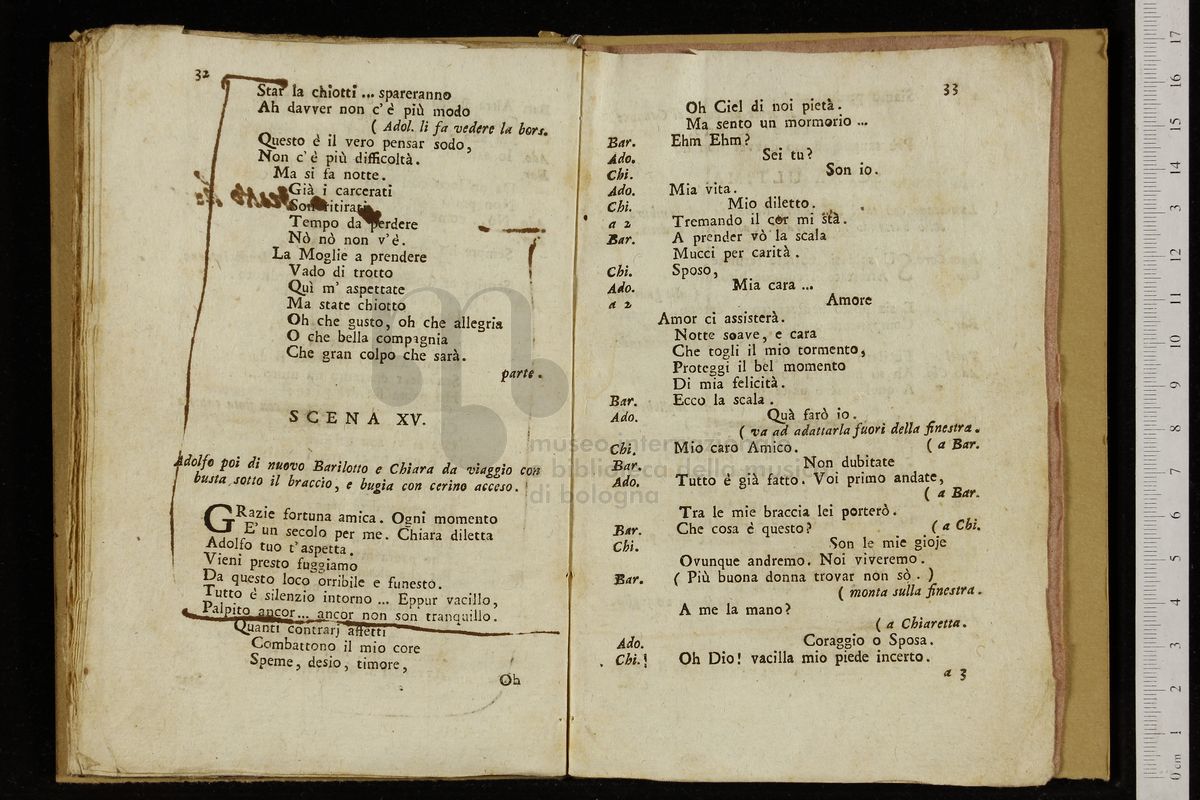 32
Star la chiotti ... spareranno
Ah davver non c'è più modo
( Adol. li fa vedere la bors.
Questo è il vero pensar sodo,
Non c'è più difficoltà.
Ma si fa notte.
Già i carcerati
Son ritirati
Tempo da perdere
Nò nò non v'è.
La Moglie a prendere
Vado di trotto
Quì m' aspettate
Ma state chiotto
Oh che gusto, oh che allegria
O che bella compagnia
Che gran colpo che sarà.
parte.
SCENA XV.
Adolfo poi di nuovo Barilotto e Chiara da viaggio con
busta sotto il braccio, e bugia con cerino acceso.
GRazie fortuna amica. Ogni momento
E' un secolo per me. Chiara diletta
Adolfo tuo t'aspetta.
Vieni presto fuggiamo
Da questo loco orribile e funesto.
Tutto è silenzio intorno ... Eppur vacillo,
Palpito ancor... ancor non son tranquillo.
Quanti contrarj affetti
Combattono il mio core
Speme, desio, timore,
Oh
33
Oh Ciel di noi pietà.
Ma sento un mormorio ...
Bar. Ehm Ehm?
Ado. Sei tu?
Chi. Son io.
Ado. Mia vita.
Chi. Mio diletto.
a 2 Tremando il cor mi stà.
Bar. A prender vò la scala
Mucci per carità.
Chi. Sposo,
Ado. Mia cara ...
a 2 Amore
Amor ci assisterà.
Notte soave, e cara
Che togli il mio tormento,
Proteggi il bel momento
Di mia felicità.
Bar. Ecco la scala.
Ado. Quà farò io.
( va ad adattarla fuori della finestra.
Chi. Mio caro Amico. ( a Bar.
Bar. Non dubitate
Ado. Tutto è già fatto. Voi primo andate,
( a Bar.
Tra le mie braccia lei porterò.
Bar. Che cosa è questo? ( a Chi.
Chi. Son le mie gioje
Ovunque andremo. Noi viveremo.
Bar. ( Più buona donna trovar non sò. )
( monta sulla finestra.
A me la mano?
( a Chiaretta.
Ado. Coraggio o Sposa.
Chi. Oh Dio! vacilla mio piede incerto.
a 3
museo internazionale
e biblioteca della musica
di bologna
0 cm 1 2 3 4 5 6 7 8 9 10 11 12 13 14 15 16 17